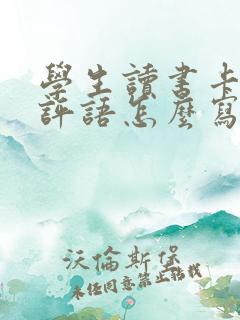 學生讀書卡
評語怎麼寫
沃倫斯堡
未經同意禁止搭載